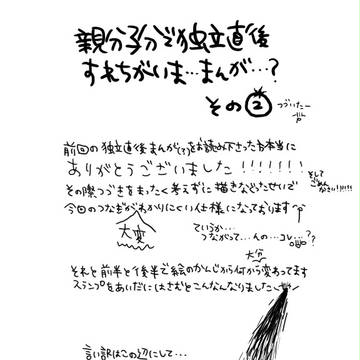 親分子分で独立直後
すれちがいま…まんが…?
その②
つづいたー
前回の独立直後まんが(?)をお読み下さった方本当に
ありがとうございました!!!!!!!
そして
ごめんなさい!!!!!
その際つづきをまったく考えずに描きなぐったせいで
今回のつなぎがわかりにくい仕様になっております
大変
ていうか…
つながって…んの…コレ…??
大分
それと前半と後半で絵のかんじから何から変わってます
スランプをあいだにはさむとこんなんなりました
言い訳はこの辺にして…